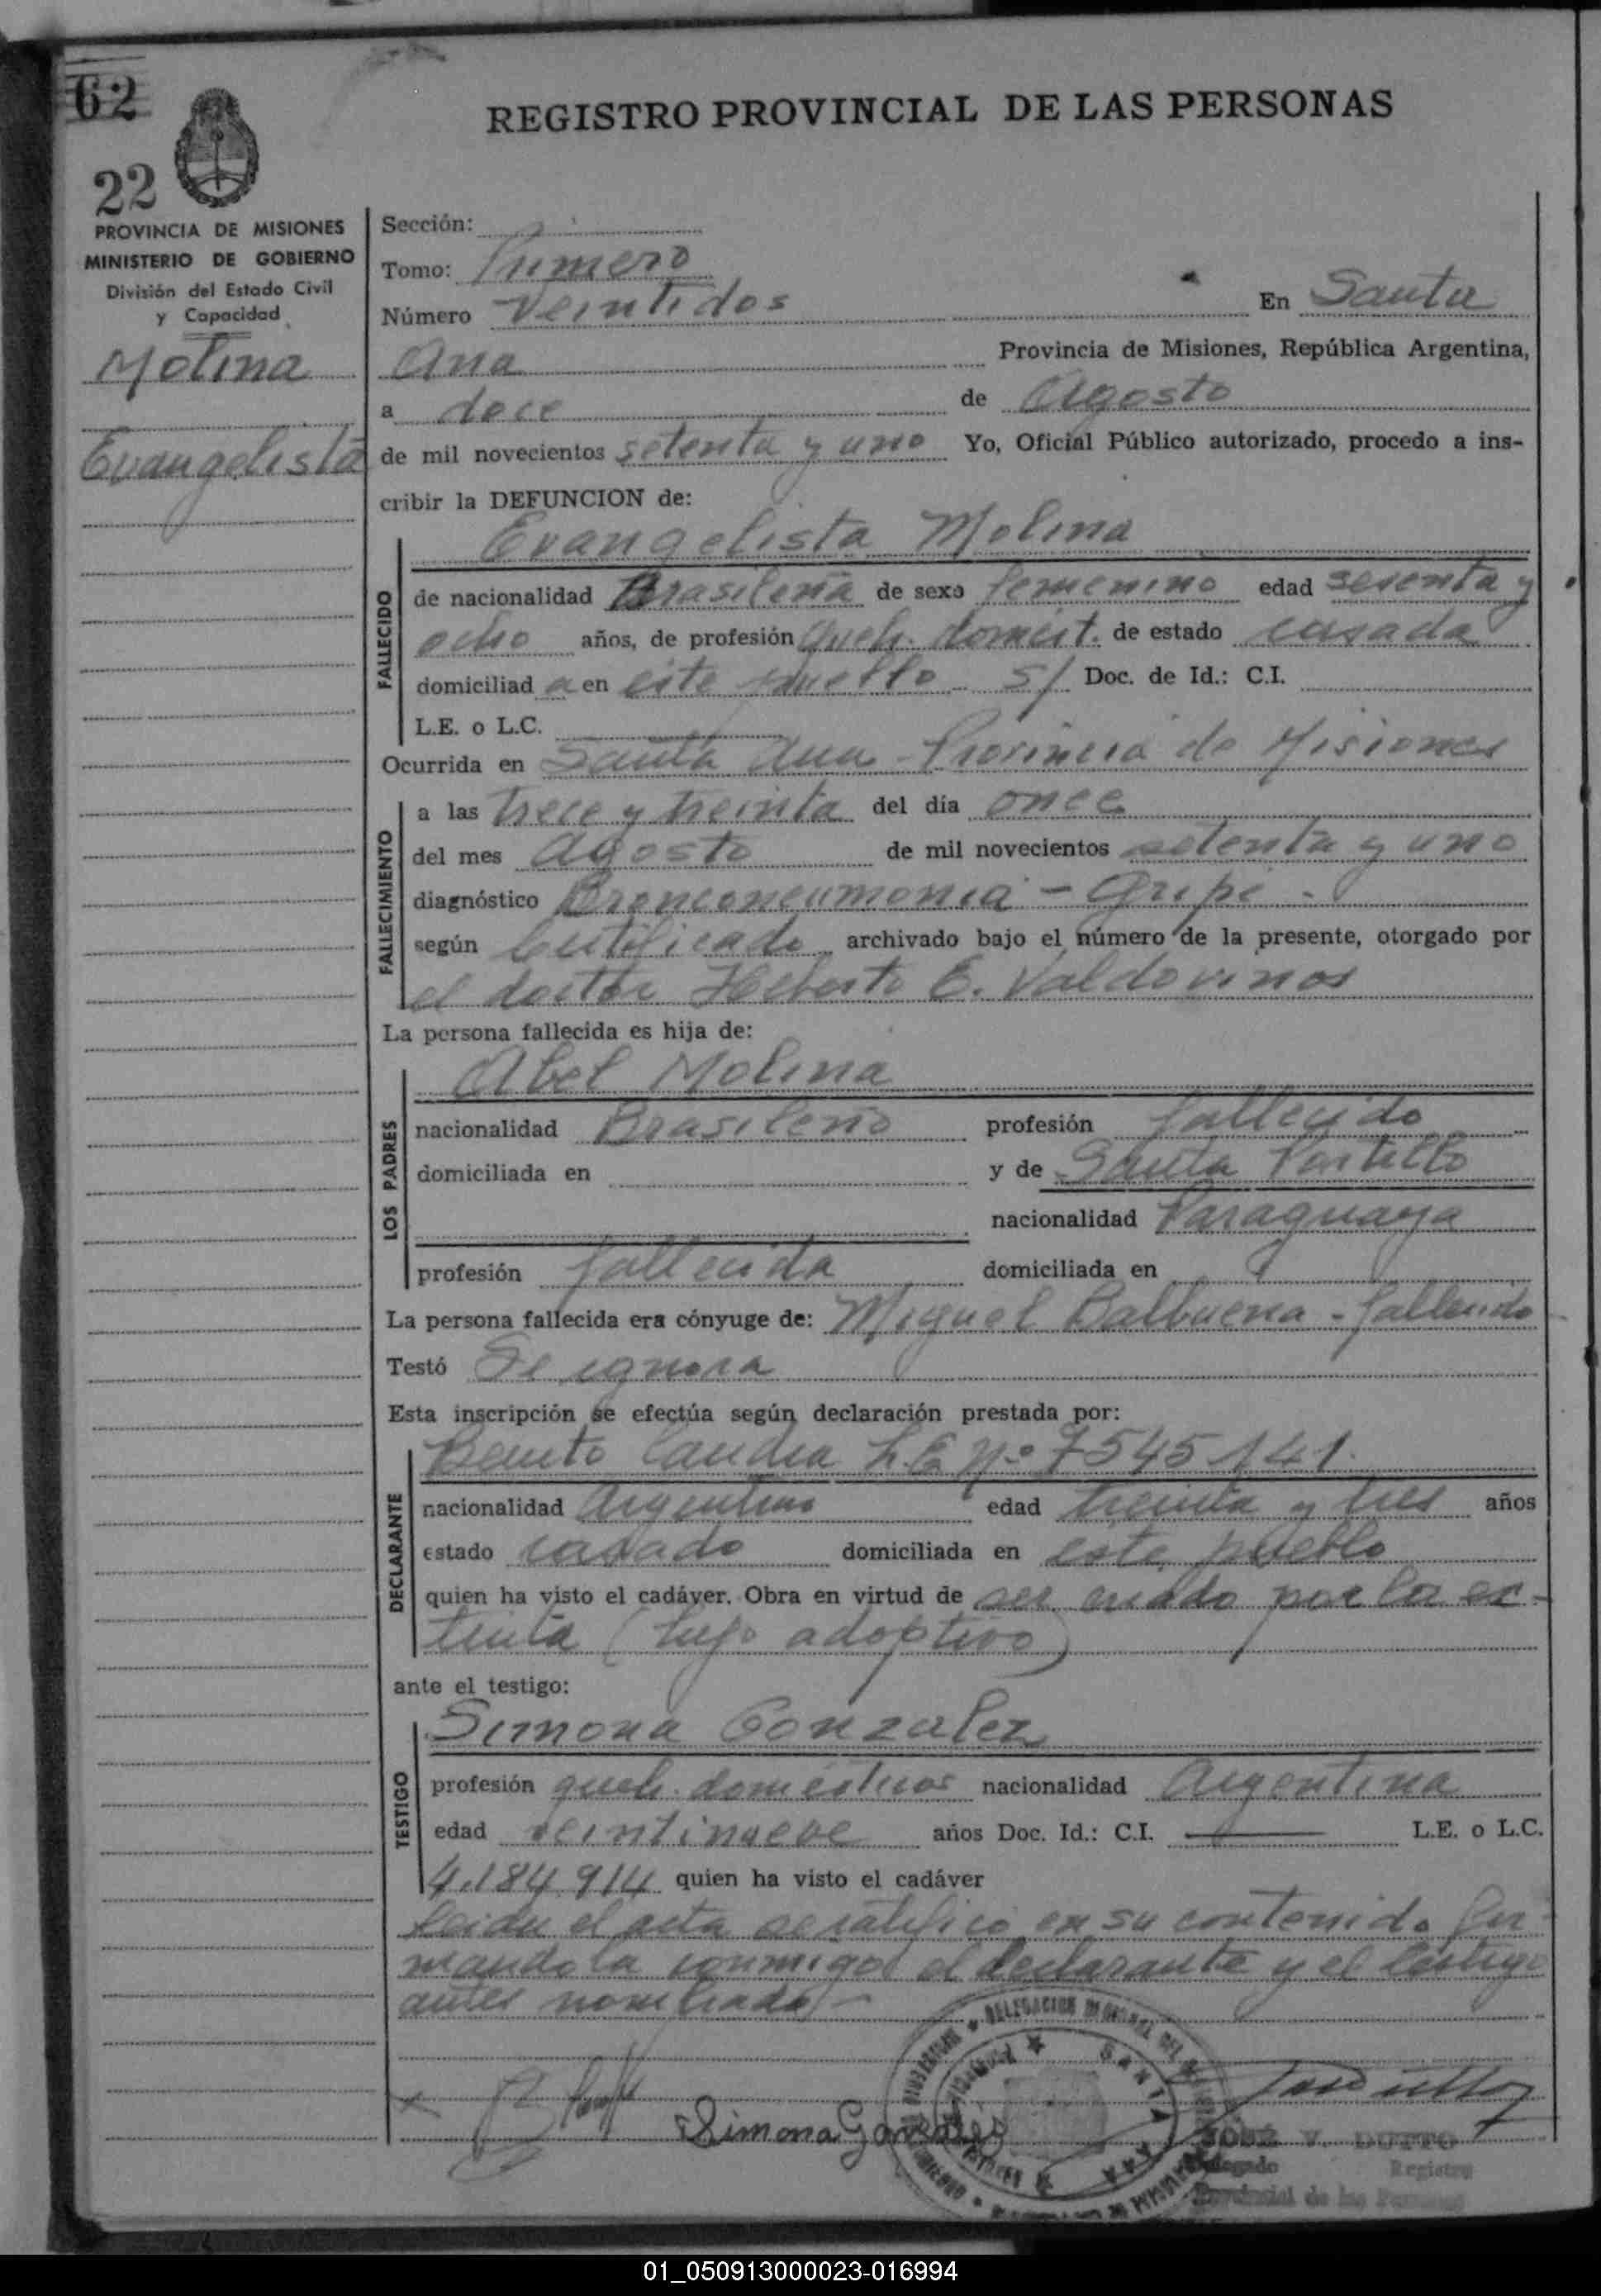 62
22
REGISTRO PROVINCIAL DE LAS PERSONAS
PROVINCIA DE MISIONES
MINISTERIO DE GOBIERNO
División del Estado Civil
y Capacidad
Molina
Evangelista
Sección:
Tomo: Primero
Número Veintidos En Santa
Ana Provincia de Misiones, República Argentina,
a doce de Agosto
de mil novecientos setenta y uno Yo, Oficial Público autorizado, procedo a ins-
cribir la DEFUNCION de:
Evangelista Molina
FALLECIDO
de nacionalidad Brasileña de sexo femenino edad
ocho años, de profesión Queh. domést. de estado casada
domiciliad a en este pueblo S/ Doc. de Id.: C.I.
L.E. o L.C.
Ocurrida en Santa Ana - Provincia de Misiones
FALLECIMIENTO
a las trece y treinta del día once
del mes Agosto de mil novecientos setenta y uno
diagnóstico Bronconeumonia - Gripe -
según Certificado archivado bajo el número de la presente, otorgado por
el doctor E. Valdovinos
La persona fallecida es hija de:
Abel Molina
LOS PADRES
nacionalidad Brasileño profesión fallecido
domiciliada en y de Santa Portillo
nacionalidad Paraguaya
profesión fallecida domiciliada en
La persona fallecida era cónyuge de: Miguel Balbuena - fallecido
Testó Se ignora
Esta inscripción se efectúa según declaración prestada por:
Benito Candia L.E. Nº 7545141.
DECLARANTE
nacionalidad Argentino edad treinta y tres años
estado casado domiciliada en este pueblo
quien ha visto el cadáver. Obra en virtud de ser criado por la ex-
tinta (hijo adoptivo)
ante el testigo:
Simona Gonzalez
TESTIGO
profesión queh. domésticos nacionalidad Argentina
edad veintinueve años Doc. Id.: C.I. — L.E. o L.C.
4.184.914 quien ha visto el cadáver
Leida el acta se ratificó en su contenido fir-
mandola conmigo el declarante y el testigo
antes nombrado -
Simona Gonzales
SANTA ANA
JOSE V. DUTTO
Delegado Registro
Provincial de las Personas
01_050913000023-016994